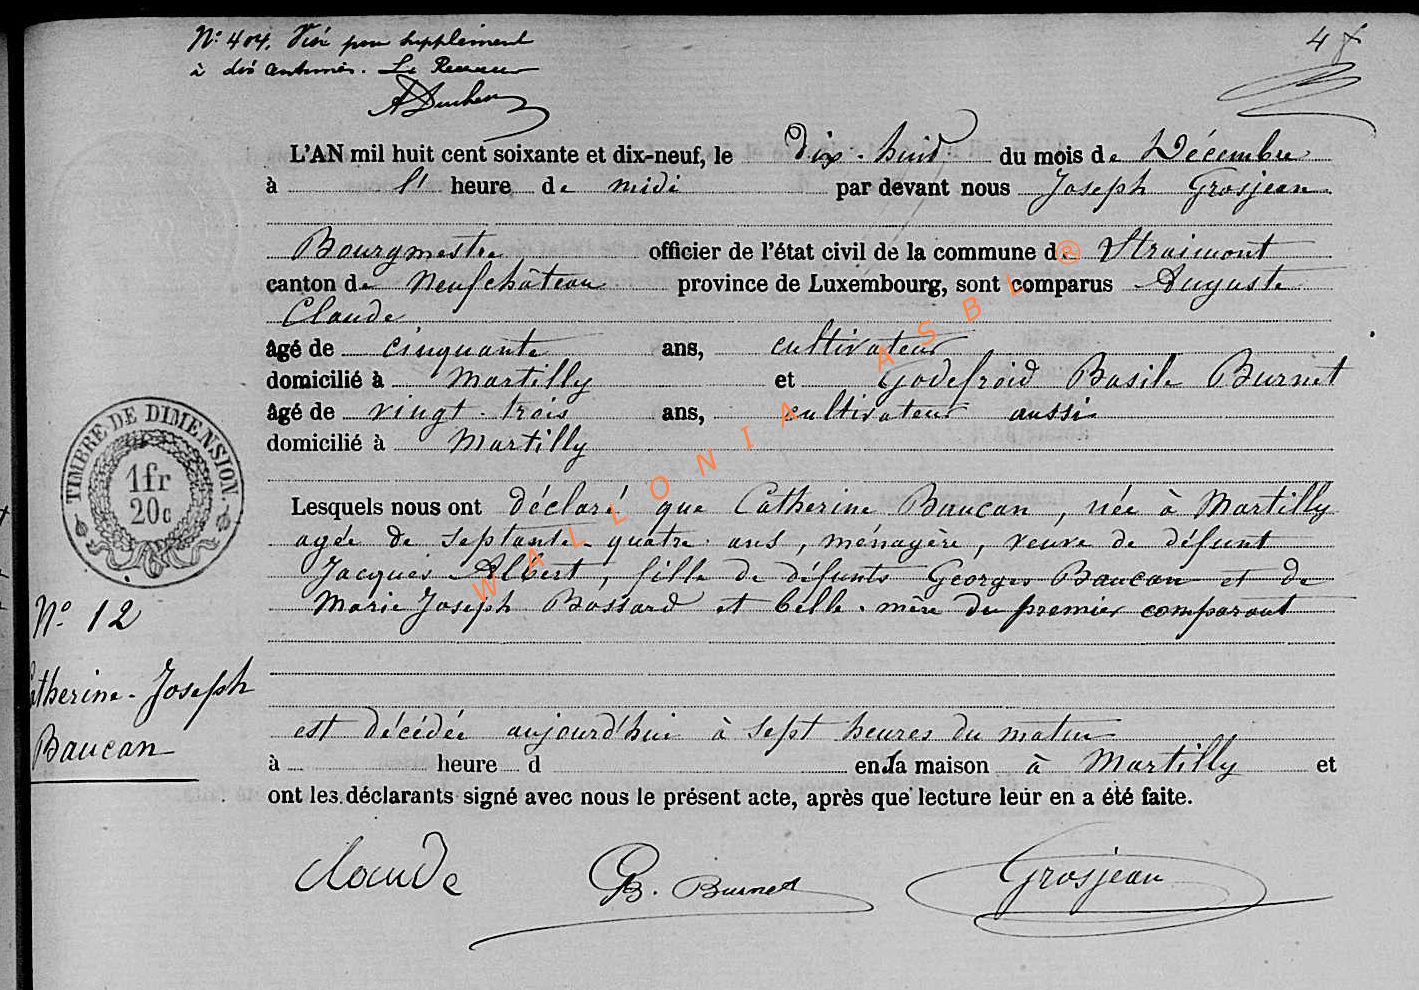 N° 404. Visé pour supplément
à dix centimes. Le Receveur
4
L'AN mil huit cent soixante et dix-neuf, le dix-huit du mois de Décembre
à l' heure de midi par devant nous Joseph Grosjean
Bourgmestre officier de l'état civil de la commune de Straimont
canton de Neufchâteau province de Luxembourg, sont comparus Auguste
Claude
âgé de cinquante ans, cultivateur
domicilié à Martilly et Godefroid Basile Burnet
âgé de vingt-trois ans, cultivateur aussi
domicilié à Martilly
TIMBRE DE DIMENSION
1fr
20c
Lesquels nous ont déclaré que Catherine Baucan, née à Martilly
agée de septante-quatre ans, ménagère, veuve de défunt
Jacques Albert, fille de défunts Georges Baucan et de
Marie Joseph Bossard et belle-mère du premier comparant
N° 12
Catherine-Joseph
Baucan
est décédée aujourd'hui à sept heures du matin
à heure d en la maison à Martilly et
ont les déclarants signé avec nous le présent acte, après que lecture leur en a été faite.
Claude GB. Burnet Grosjean
WALLONIA ASBL ®